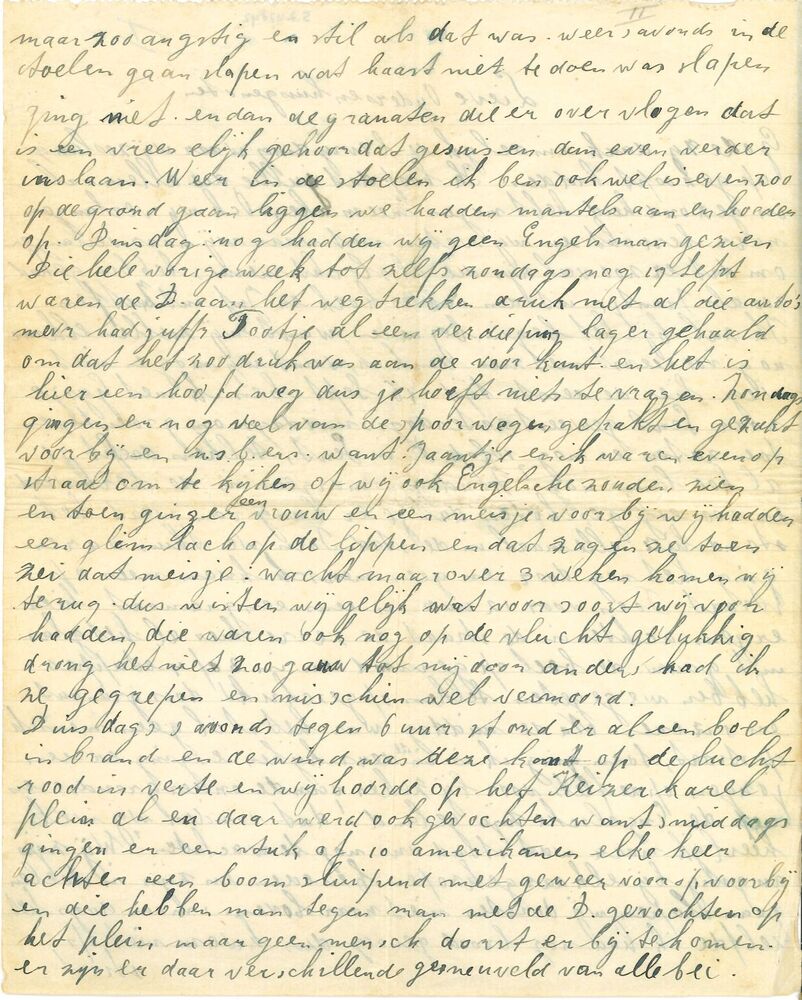 II
maar zoo angstig en stil als dat was. weer savonds in de
stoelen gaan slapen wat haast niet te doen was slapen
ging niet. en dan de granaten die er over vlogen dat
is een vreeselijk gehoor dat gesuis en dan even verder
inslaan. Weer in de stoelen ik ben ook wel is even zoo
op de grond gaan liggen we hadden mantels aan en hoeden
op. Dinsdag nog hadden wij geen Engelsman gezien
Die hele vorige week tot zelfs zondags nog 17 sept
waren de D. aan het wegtrekken druk met al die auto's
mevr had juffr Tootje al een verdieping lager gehaald
om dat het zoo druk was aan de voorkant. en het is
hier een hoofdweg dus je hoeft niets te vragen. Zondags
gingen er nog veel van de spoorwegen gepakt en gezakt
voorbij en n.s.b.ers. want Jaantje en ik waren even op
straat om te kijken of wij ook Engelsche zouden zien
en toen ging er een vrouw en een meisje voorbij wij hadden
een glimlach op de lippen en dat zagen ze toen
zei dat meisje: wacht maar over 3 weken komen wij
terug. dus wisten wij gelijk wat voor soort wij voor
hadden die waren ook nog op de vlucht gelukkig
drong het niet zoo gauw tot mij door anders had ik
ze gegrepen en misschien wel vermoord.
Dinsdags savonds tegen 6 uur stond er al een boel
in brand en de wind was deze kant op de lucht
rood in verte en wij hoorde op het Keizer karel
plein al en daar werd ook gevochten want smiddags
gingen er een stuk of 10 amerikanen elke keer
achter een boom sluipend met geweer voorop voorbij
en die hebben man tegen man met de D. gevochten op
het plein maar geen mensch dorst er bij te komen.
er zijn er daar verschillende gesneuveld van allebei.